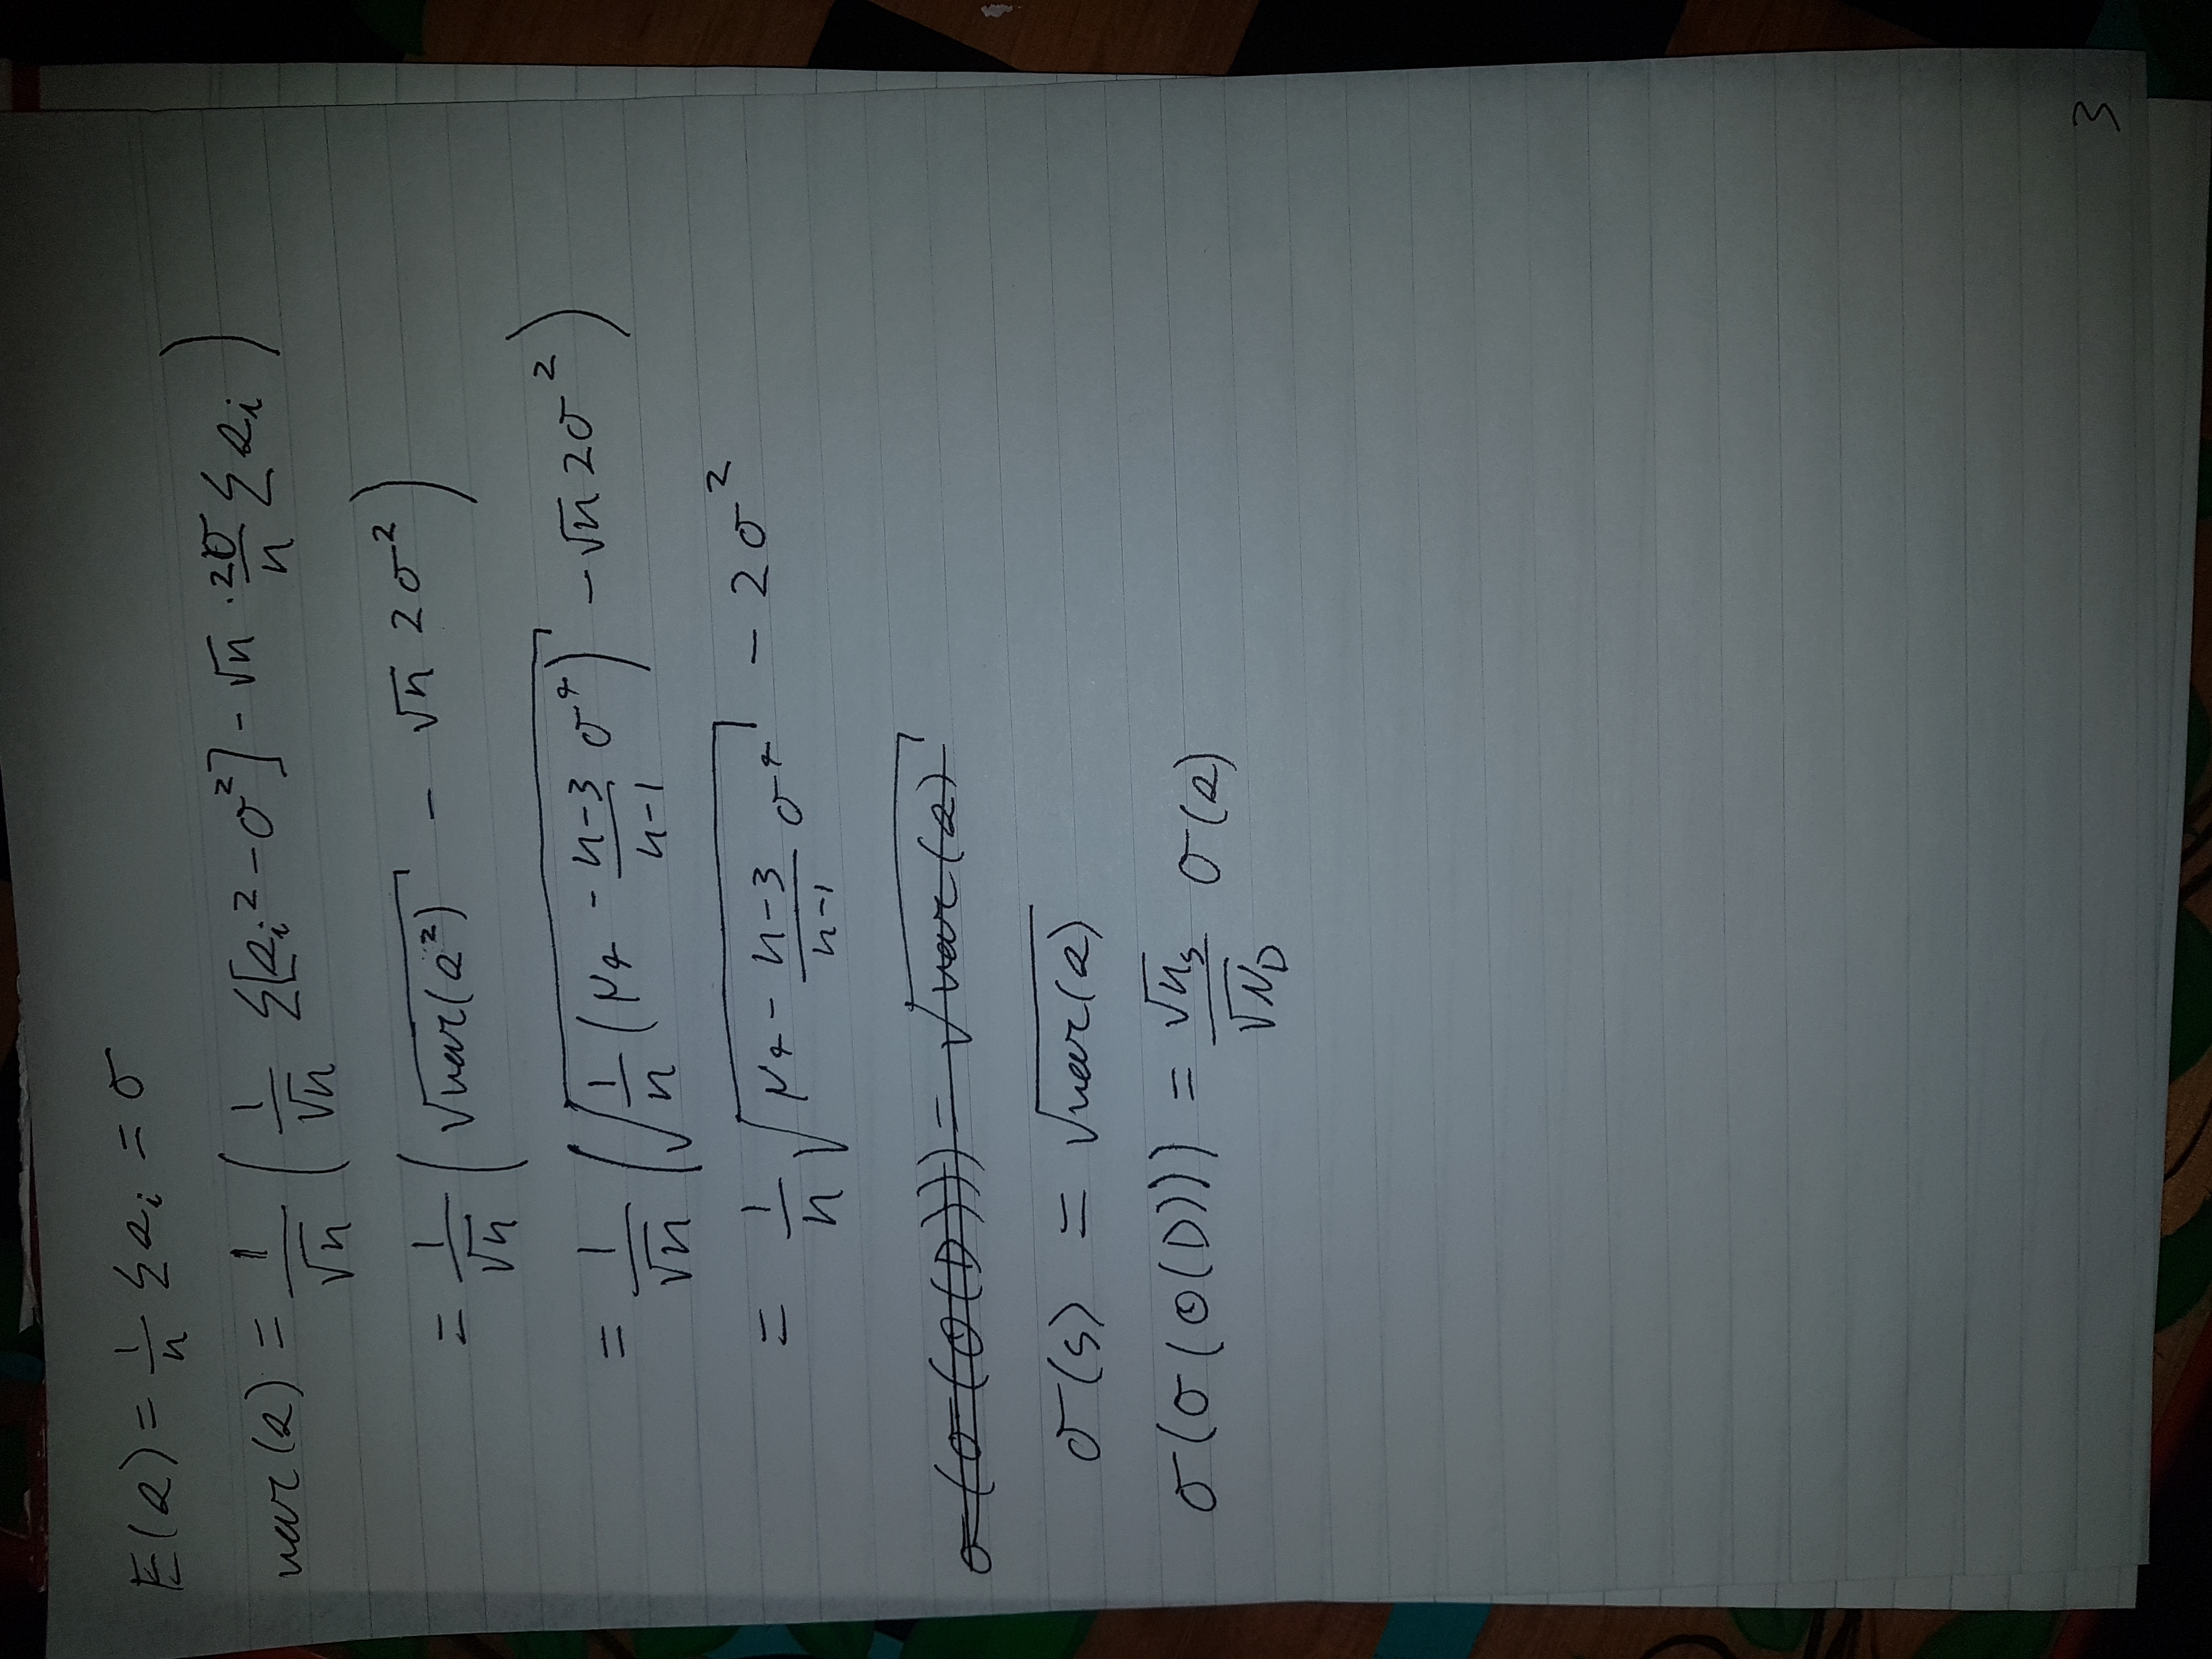 E(s) = 1/n Σ s_i = σ
var(s) = 1/√n ( 1/√n Σ[s_i² − σ²] − √n · 2σ/n Σ s_i )
= 1/√n ( √var(s²) − √n 2σ² )
= 1/√n ( √(1/n (μ₄ − (n−3)/(n−1) σ⁴)) − √n 2σ² )
= 1/n √(μ₄ − (n−3)/(n−1) σ⁴) − 2σ²
σ(σ(Θ(D))) = √var(s)
σ(s) = √var(s)
σ(σ(Θ(D))) = √n_s/√N_D σ(s)
3